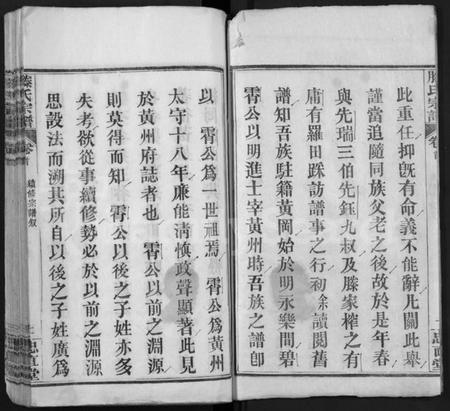 此重任抑既有命義不能辭此關此舉
謹當追隨同族父老之後故於是年春
與先瑞三伯先鈺九叔及滕家榨之有
庸有羅田踩訪譜事之行初餘讀閱舊
譜知吾族駐籍黃岡始於明永樂間碧
霄公以明進士宰黃州時吾族之譜卽
以 霄公爲一世祖焉 霄公爲黃州
太守十八年廉能淸慎政聲顯著此見
於黃州府誌者也 霄公以前之淵源
則莫得而知 霄公以後之子姓亦多
失考欲從事續修勢必於以前之淵源
思設法而溯其所自以後之子姓廣爲
滕氏宗譜
卷首
續修宗譜叙
忠直堂
滕氏宗譜
卷首
忠直堂